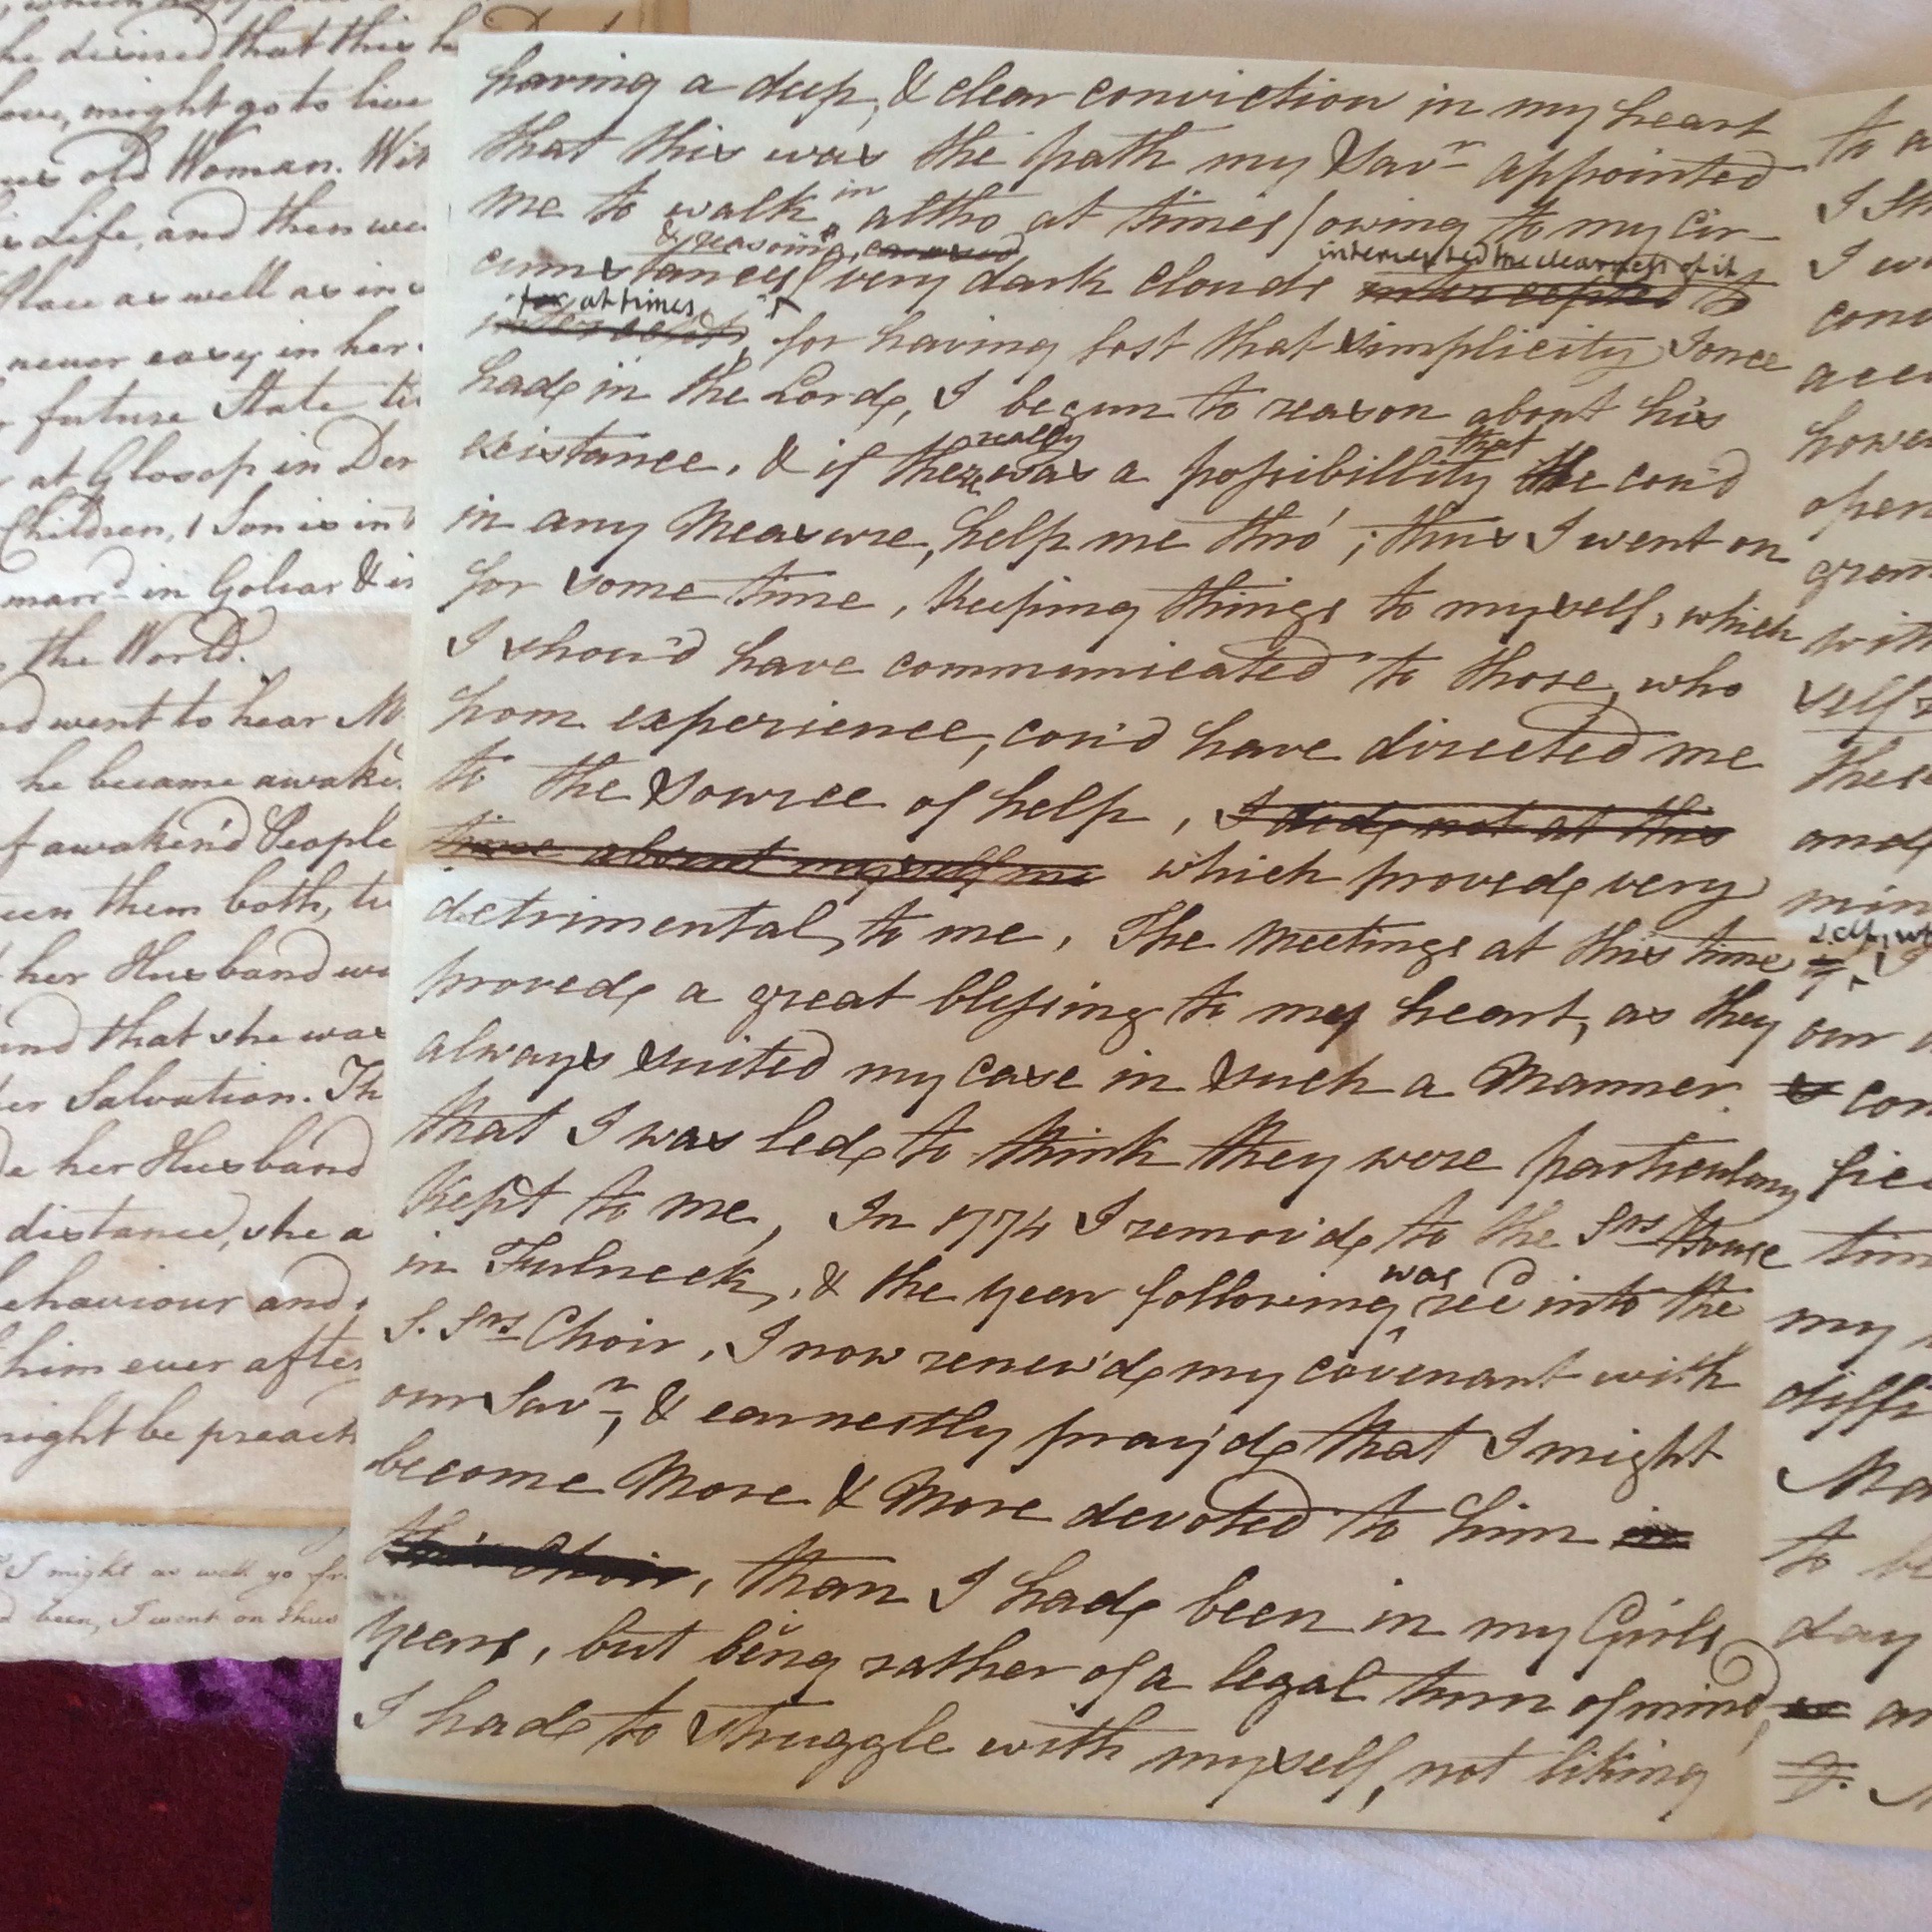 he desired that this
love, might go to live
old Woman. Wit
Life, and then we
Place as well as in
never easy in her
future State
at Glosop in Der
Children, 1 Son is in
marrd in Golcar & is
the World.
went to hear M
he became awake
of awaken'd People
een them both, tu
her Husband we
and that she was
her Salvation. Th
her Husband
distance, she a
ehaviour and
him ever after
might be preach
I might as well go
been, I went on thus
having a deep, & clear conviction in my heart
that this was the path my Savr appointed
me to walk in altho at times /owing to my cir-
& reasoning,
intercepted the clearness of it
cumstances/ very dark clouds intercepted to
for at times
for having lost that simplicity I once
had, in the Lord, I begun to reason about his
really that
existance, & if there was a possibillity he cou'd
in any Measure, help me thro'; thus I went on
for some time, keeping things to myself, which
I shou'd have communicated to those, who
from experience, cou'd have directed me
to the Source of help, I did not at this
time absent myself which proved, very
detrimental, to me, The Meetings at this time
proved, a great blessing to my heart, as they
always suited my case in such a Manner
that I was led, to think they were particulary
kept to me, In 1774 I remov'd, to the Srs House
was
in Fulneck, & the year following recd into the
S. Srs Choir, I now renew'd, my covenant with
our Savr, & earnestly pray'd, that I might
become More & More devoted to him in
this Choir, than I had, been in my Girls
years, but being rather of a legal turn of mind,
I had, to struggle with myself, not liking
to a
I
I
con
acc
howe
open
gran
with
self
these
and
min
self, wh
I
our
con
fie
tim
my
diff
Ma
to be
day
an